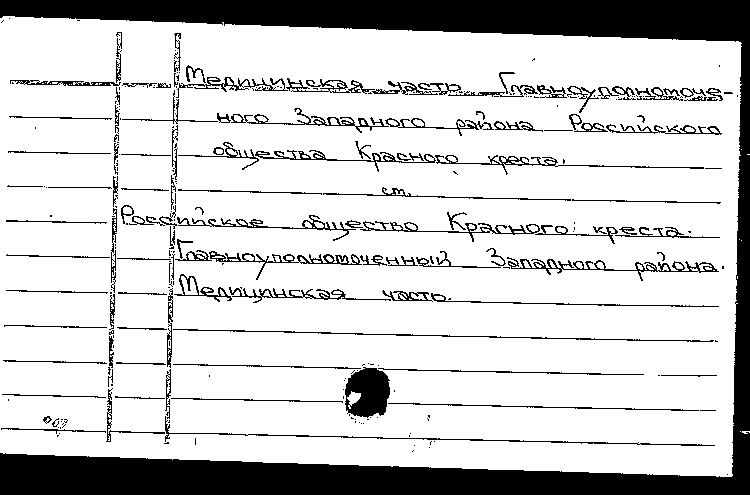 Медицинская часть Главноуполномоче-
ного Западного района Российского
общества Красного креста.
см.
Российское общество Красного креста.
Главноуполномоченный Западного района.
Медицинская часть.